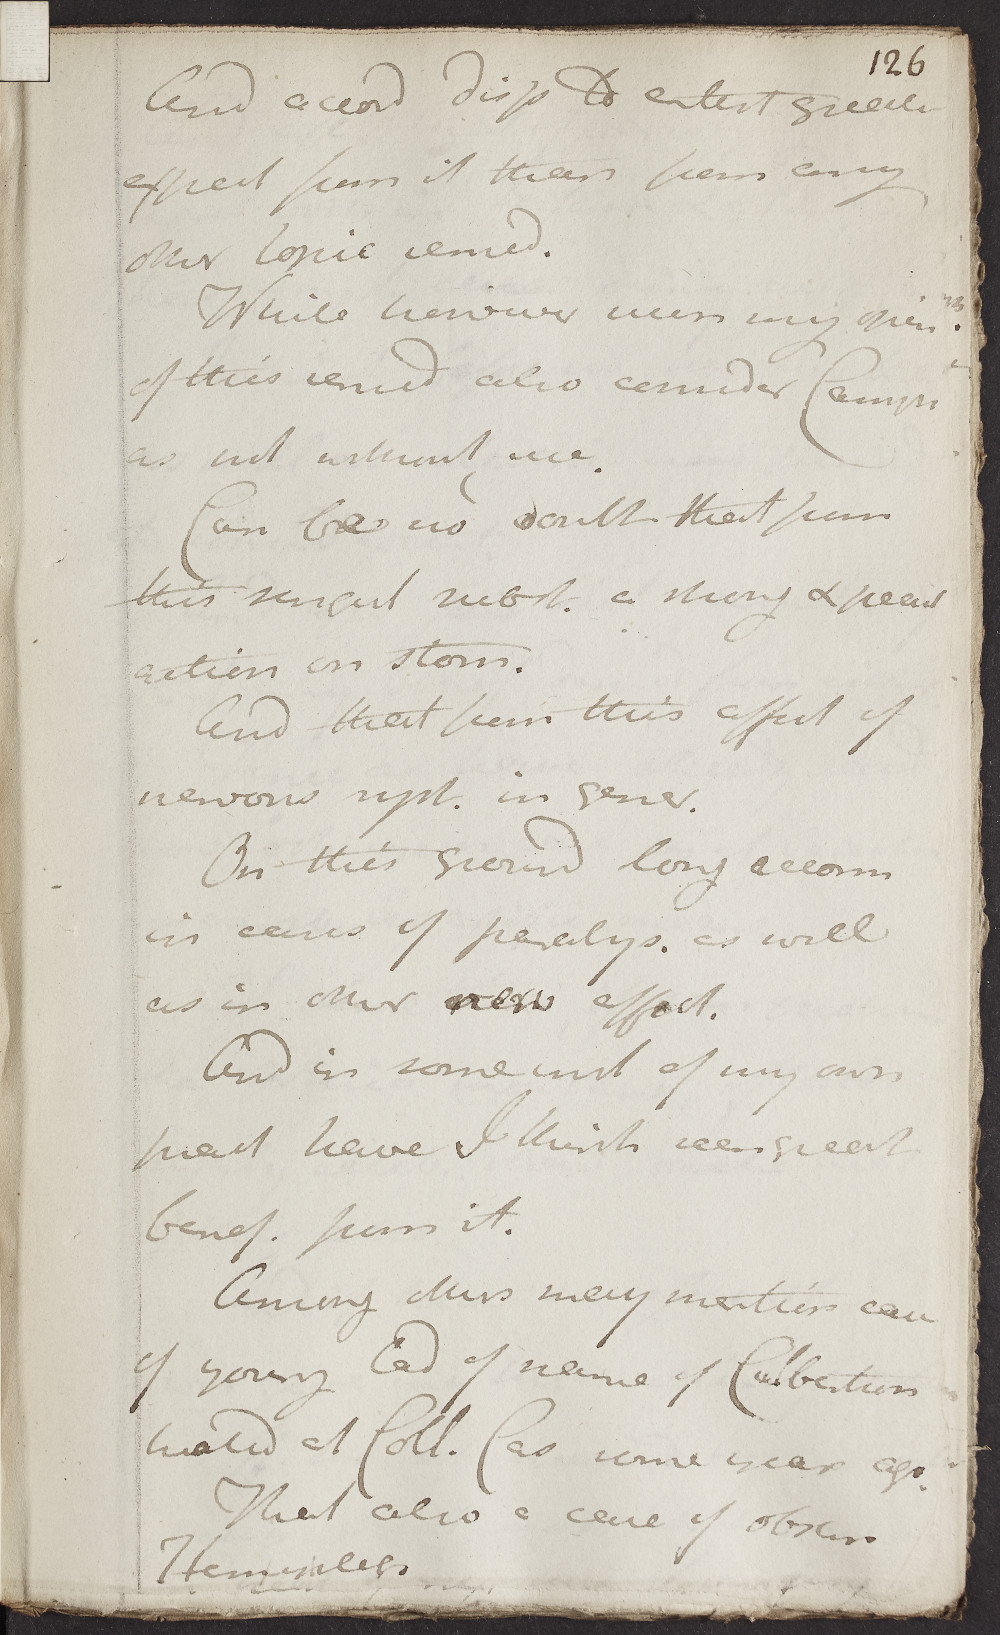 126
And accord disp to entert greater
expect from it than from any
other topic remed.
While however such my opin
of this remed also consider Camph
as not without use.
Can be no doubt that from
this singul subst. a strong & pecul
action on stom.
And that from this affect of
nervous syst. in gener.
On this ground long recom
in cases of paralys. as well
as in other nerv affect.
And in some inst of my own
pract have I think seen great
benef. from it.
Among others may mention case
of young Lad of name of Culbertson
treated at Coll. Cas some year ago.
That also a case of obscur
Hemipleg.